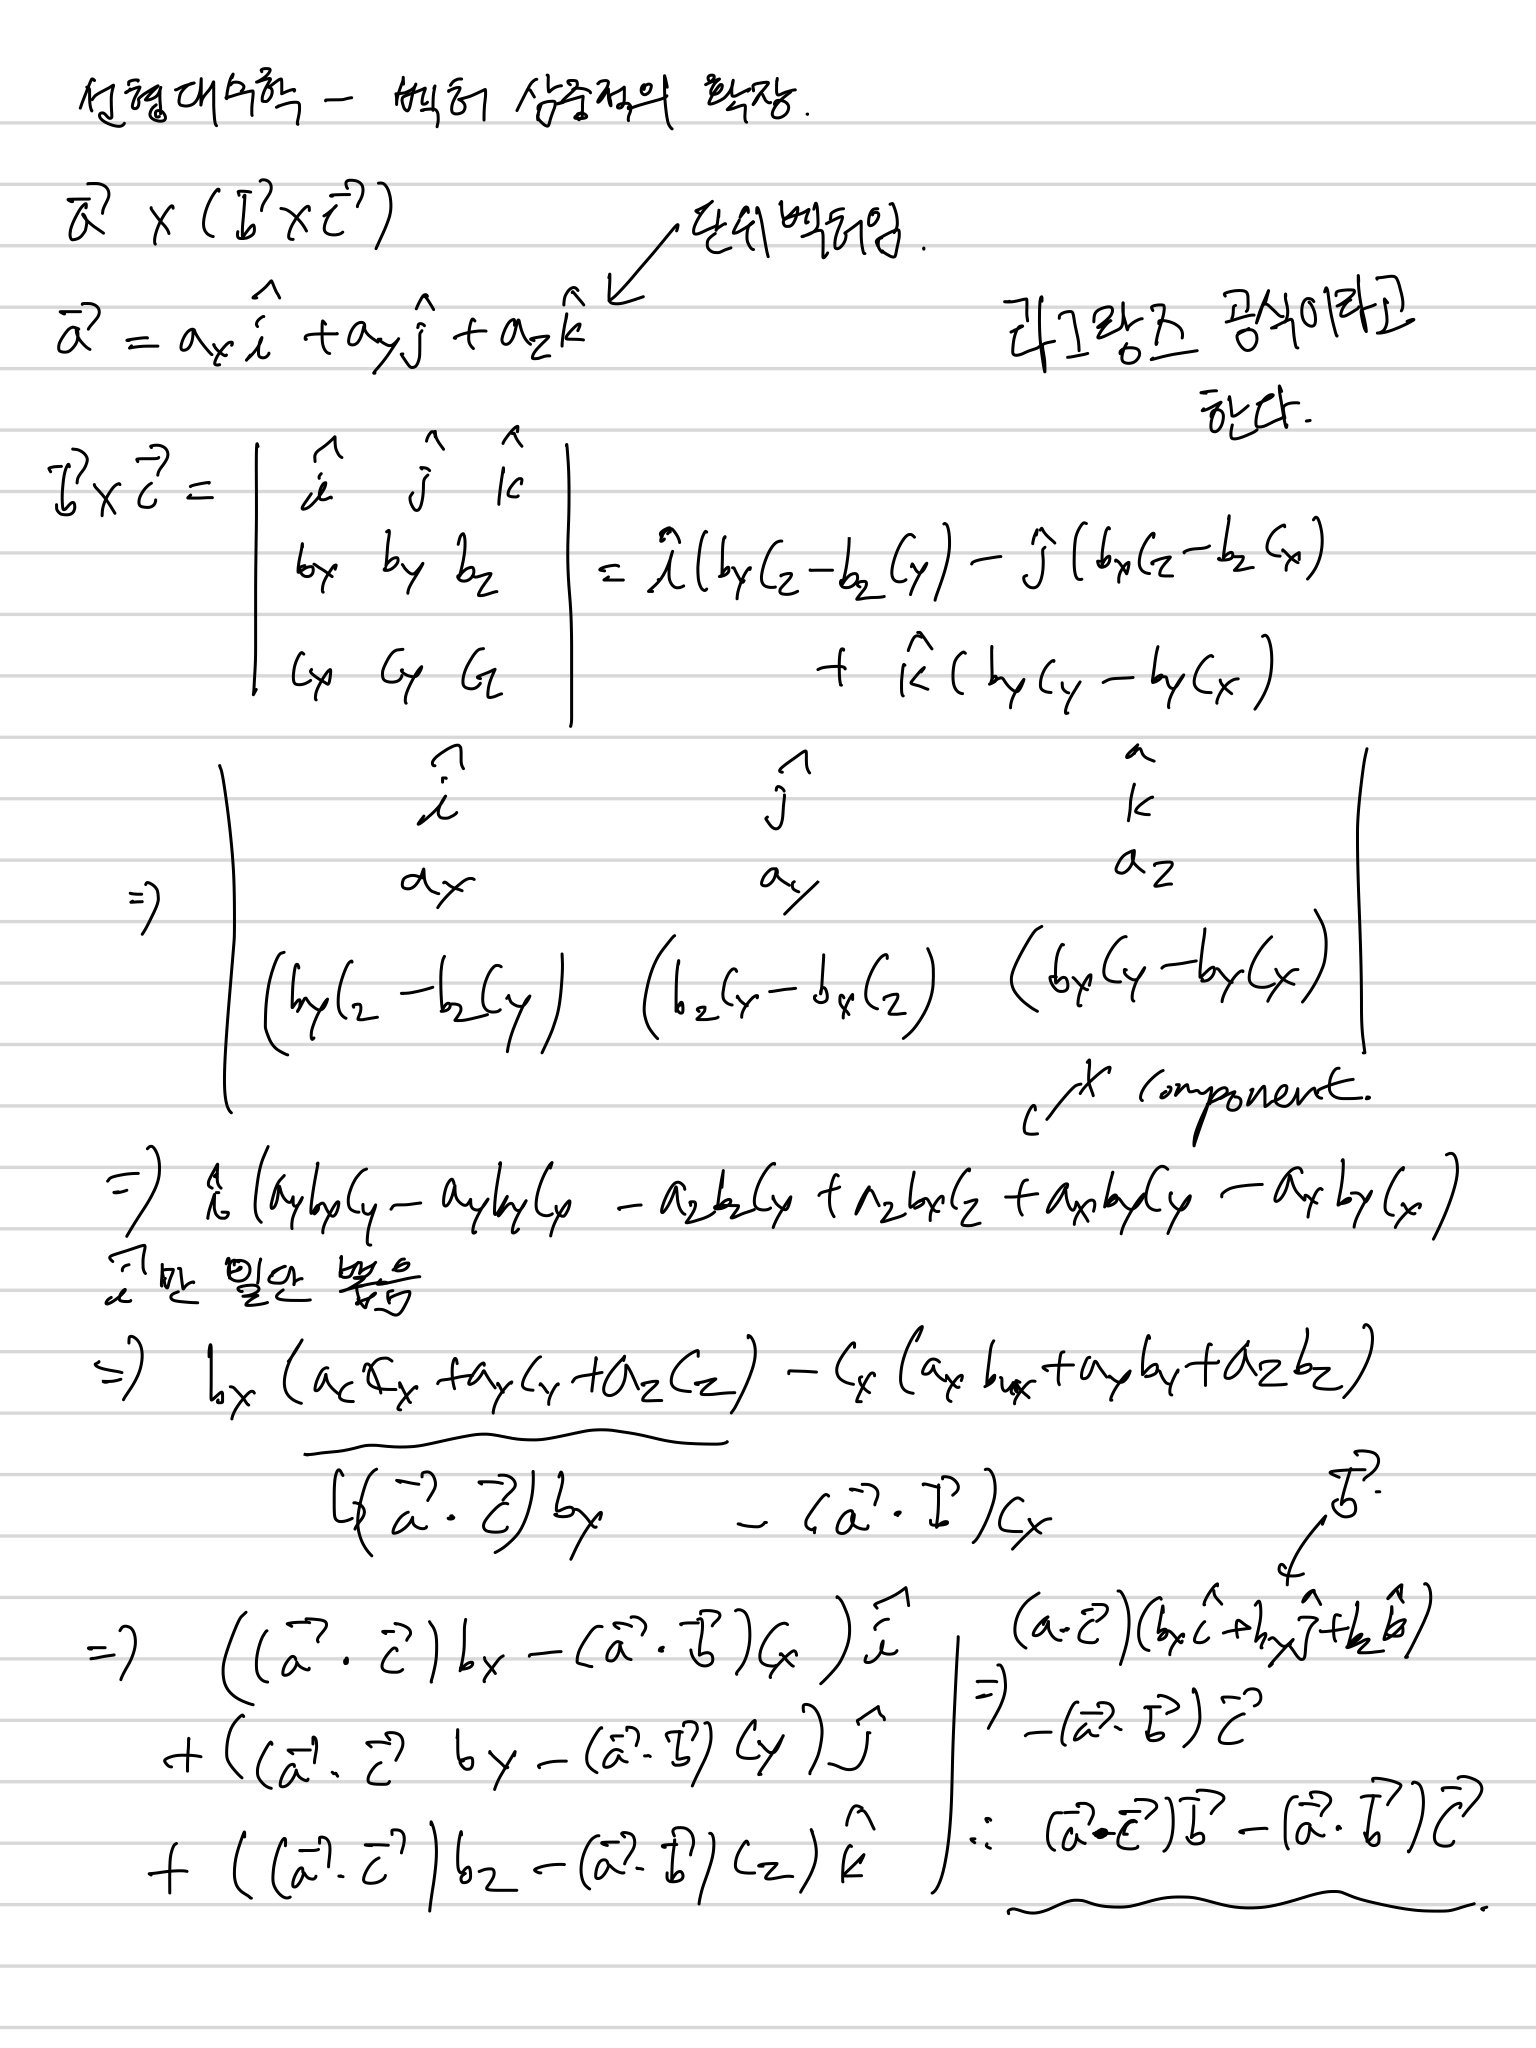 선형대수학 - 벡터 삼중적의 확장.
a⃗ × (b⃗ × c⃗)
↙ 단위벡터임.
a⃗ = aₓî + a_yĵ + a_zk̂
라그랑즈 공식이라고
한다.
b⃗ × c⃗ = | î ĵ k̂ |
| bₓ b_y b_z | = î(b_yc_z - b_zc_y) - ĵ(bₓc_z - b_zcₓ)
| cₓ c_y c_z | + k̂(b_yc_y - b_ycₓ)
⇒ | î ĵ k̂ |
| aₓ a_y a_z |
| (b_yc_z - b_zc_y) (b_zcₓ - bₓc_z) (bₓc_y - b_ycₓ) |
↙ x component.
⇒ î(a_ybₓc_y - a_yb_ycₓ - a_zb_zcₓ + a_zbₓc_z + aₓb_yc_y - aₓb_ycₓ)
î만 일단 봄
⇒ bₓ(a_c cₓ + a_yc_y + a_zc_z) - cₓ(aₓbₓ + a_yb_y + a_zb_z)
↳(a⃗·c⃗)bₓ - (a⃗·b⃗)cₓ
⇒ ((a⃗·c⃗)bₓ - (a⃗·b⃗)cₓ)î
+ ((a⃗·c⃗ b_y - (a⃗·b⃗)c_y)ĵ
+ ((a⃗·c⃗)b_z - (a⃗·b⃗)c_z)k̂
b⃗.
(a·c⃗)(bₓî + b_yĵ + b_zk̂)
⇒ -(a⃗·b⃗)c⃗
∴ (a⃗·c⃗)b⃗ - (a⃗·b⃗)c⃗.